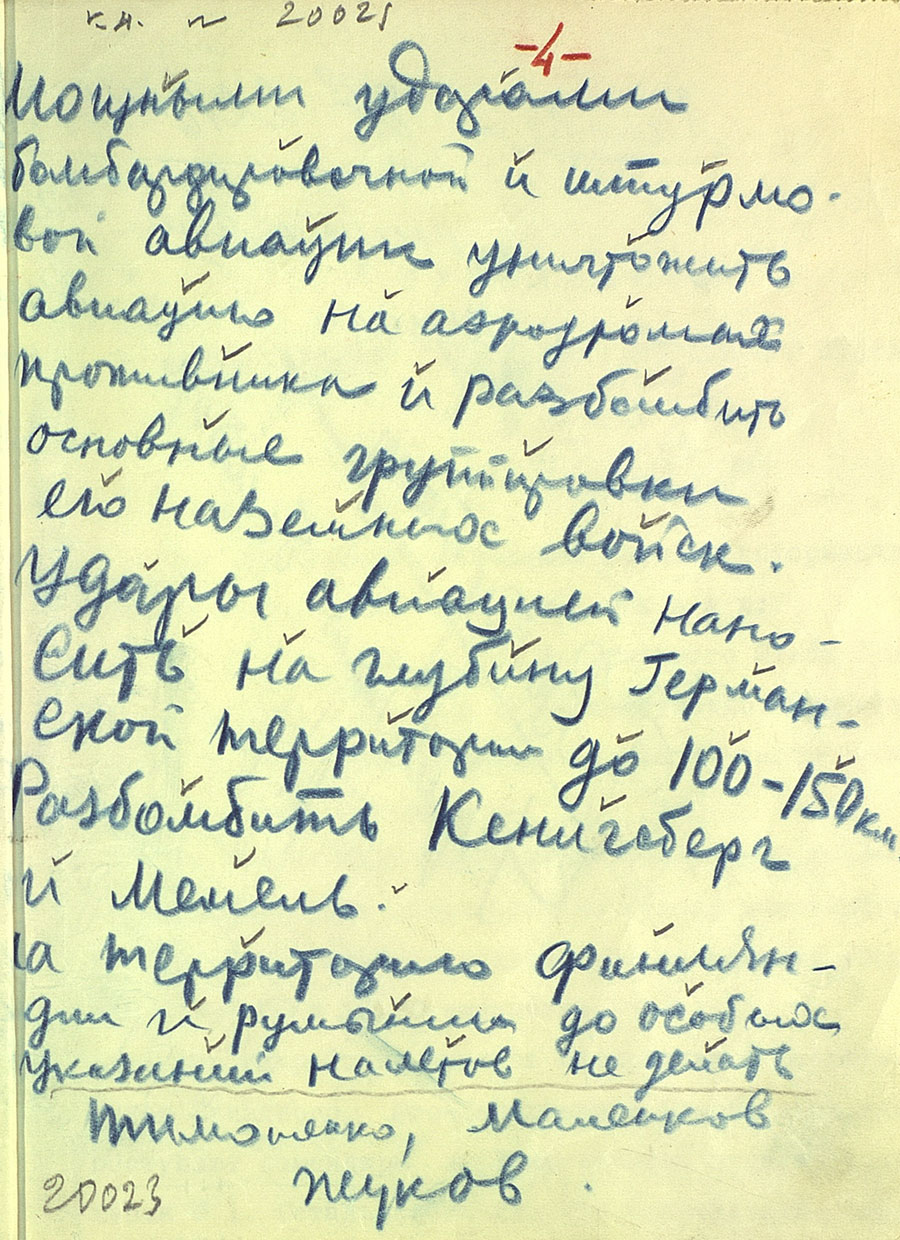 к.н. № 20023
-4-
Мощными ударами
бомбардировочной и штурмо-
вой авиации уничтожить
авиацию на аэродромах
противника и разбомбить
основные группировки
его наземных войск.
Удары авиацией нано-
сить на глубину Герман-
ской территории до 100-150 км
Разбомбить Кенигсберг
и Мемель.
на территорию Финлян-
дии и румынии до особых
указаний налетов не делать
Тимошенко, Маленков
Жуков.
20023